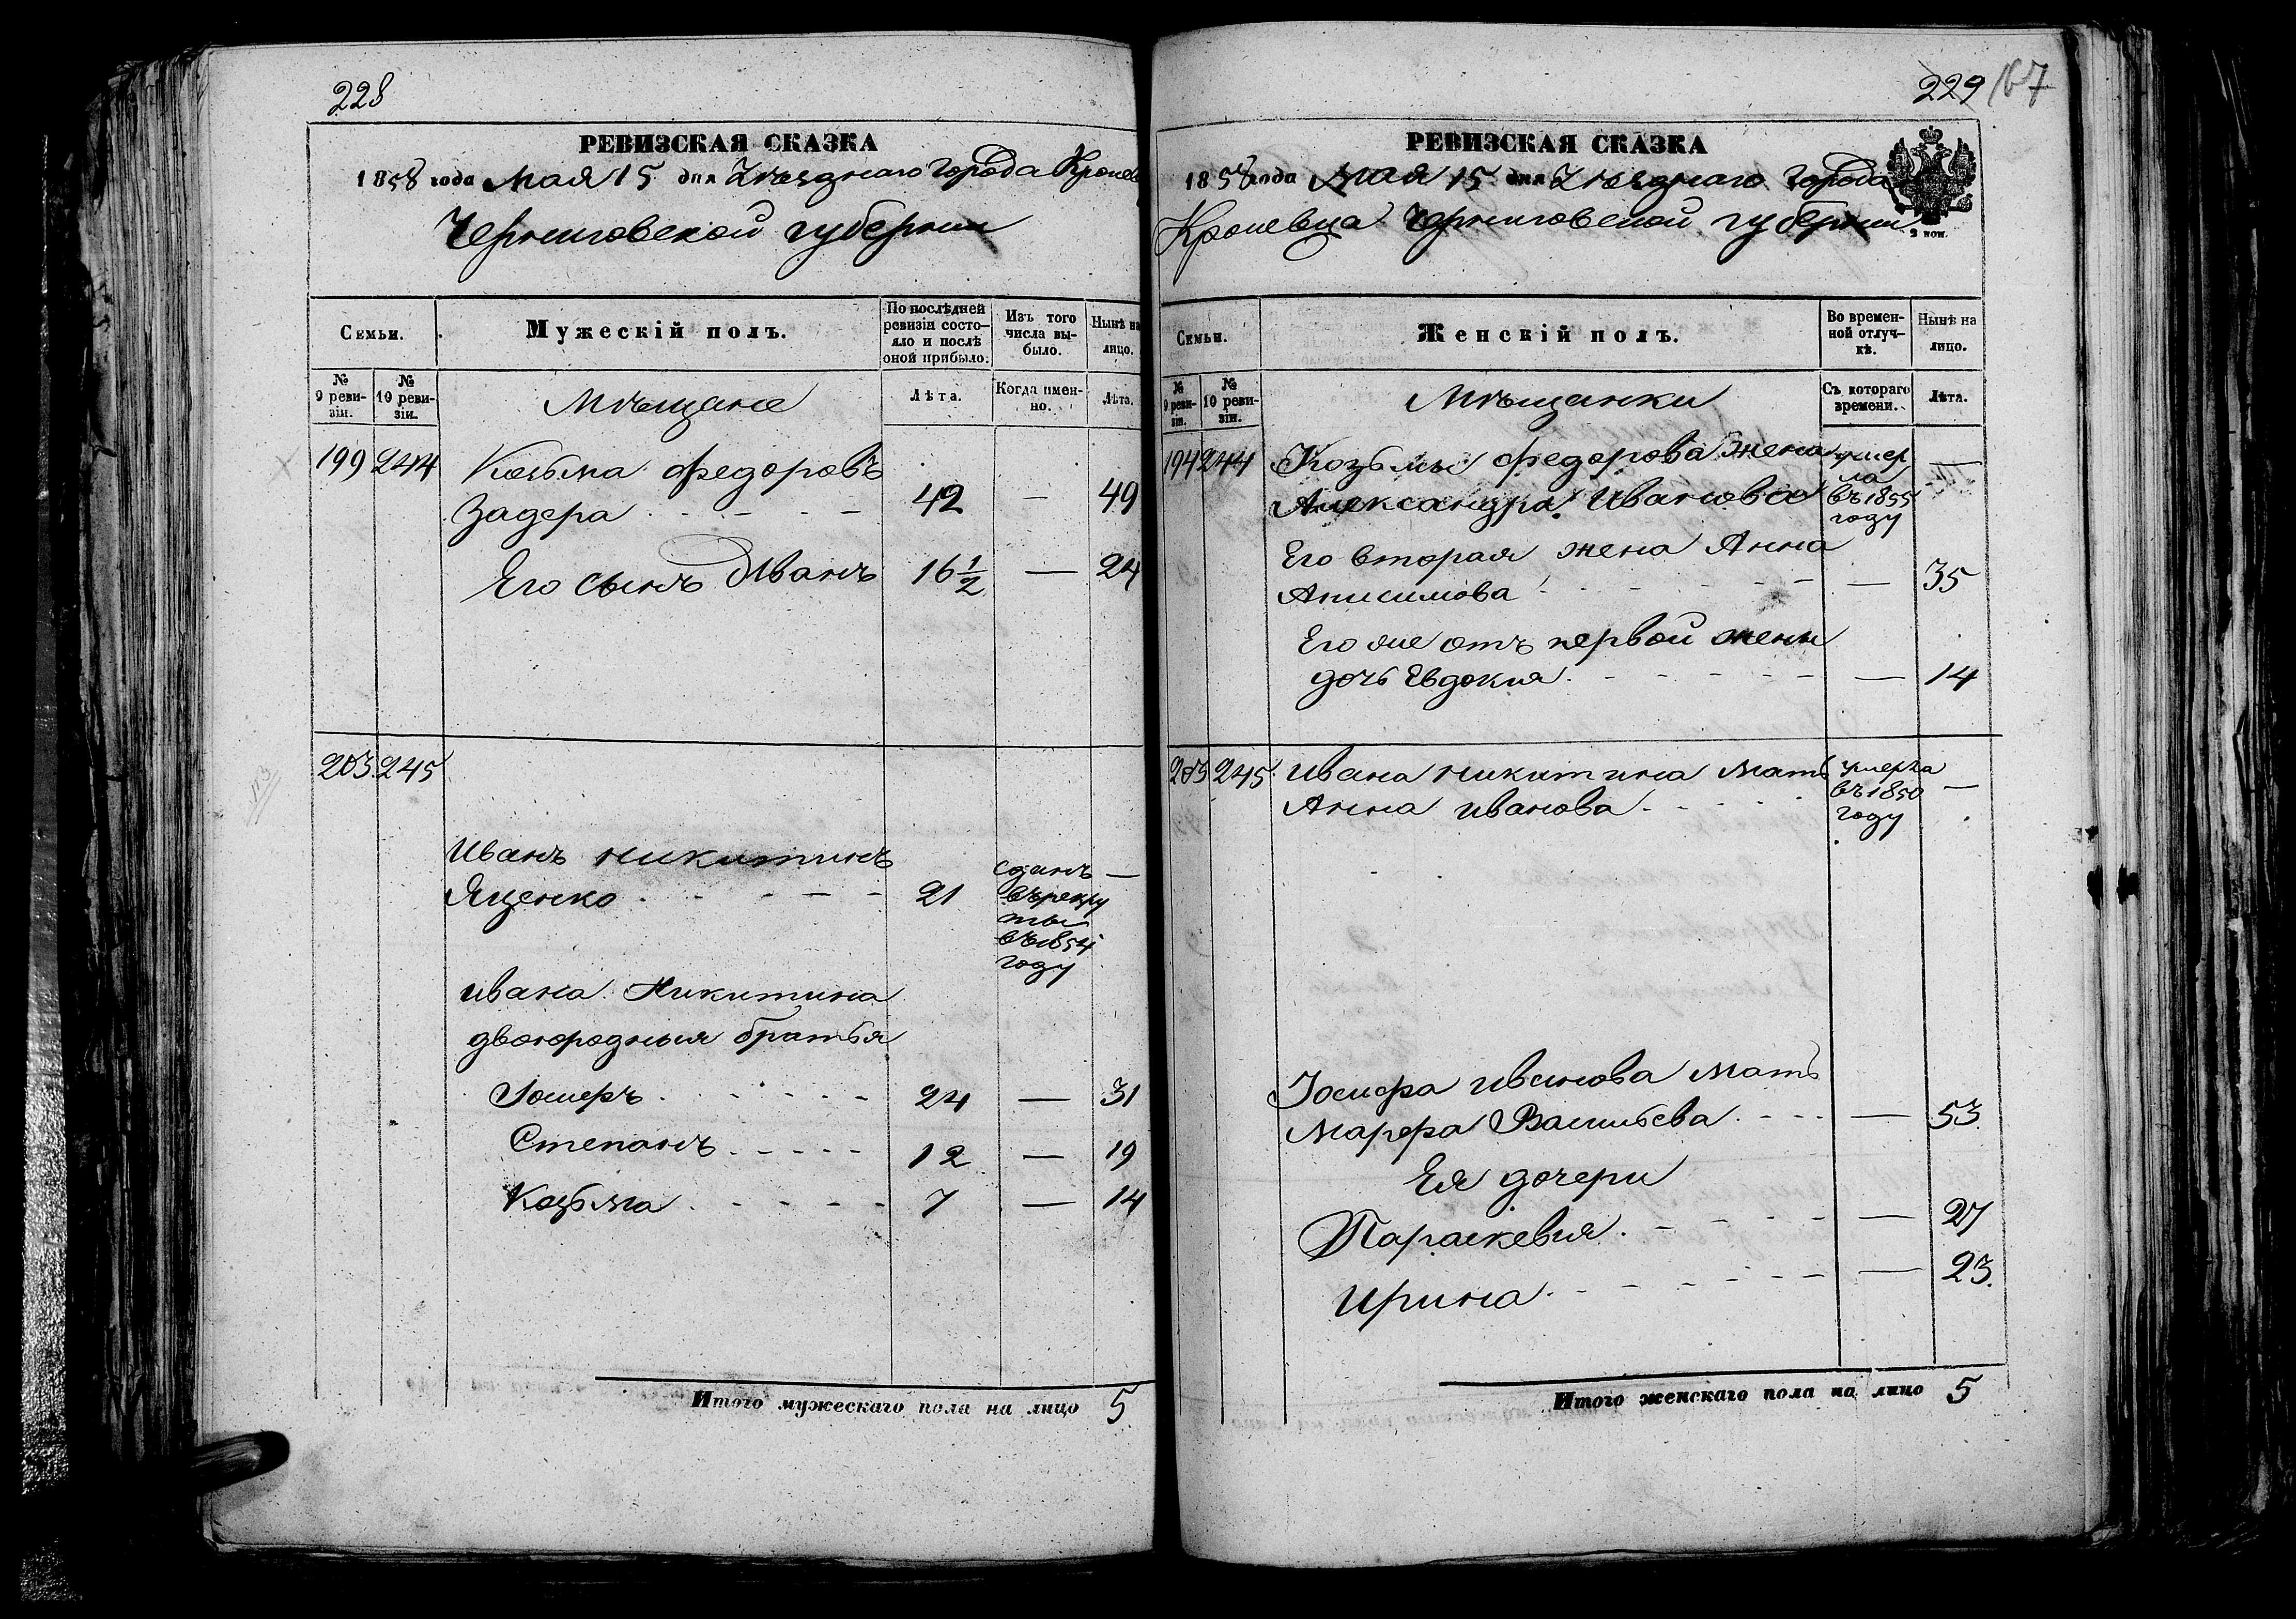 228
РЕВИЗСКАЯ СКАЗКА
1858 года Мая 15 дня Уѣзднаго города Кролев
Черниговской губернии
Семьи.
Мужескій полъ.
По послѣдней ревизіи состо-
яло и послѣ
оной прибыло.
Изъ того
числа вы-
было.
Нынѣ на
лицо.
№
9 реви-
зіи.
№
10 реви-
зіи.
Мѣщане
Лѣта.
Когда имен-
но.
Лѣта.
199 244 Козьма Федоровъ
Задера 42 — 49
Его сынъ Иванъ 16 1/2 — 24
203 245
Иванъ Никитинъ
Яценко 21 сданъ —
въ рекру
ты
въ 1854
году
Ивана Никитина
двоюродныя братья
Іосифъ 24 — 31
Степанъ 12 — 19
Козьма 7 — 14
Итого мужескаго пола на лицо 5
229 167
РЕВИЗСКАЯ СКАЗКА
1858 года Мая 15 дня Уѣзднаго города
Кролевца Черниговской губернии
Семьи.
Женскій полъ.
Во времен-
ной отлуч-
кѣ.
Нынѣ на
лицо.
№
9 реви-
зіи.
№
10 реви-
зіи.
Мѣщанки
Съ котораго
времени.
Лѣта.
194 244 Козьмы Федорова жена умер —
ла
Александра Иванова въ 1855
году
Его вторая жена Анна
Анисимова — 35
Его же отъ первой жены
дочь Евдокия — 14
203 245 Ивана Никитина мать умерла —
Анна Иванова въ 1850
году
Іосифа Иванова мать
Марфа Васильева — 53
Ея дочери
Параскевия — 27
Ирина — 23.
Итого женскаго пола на лицо 5